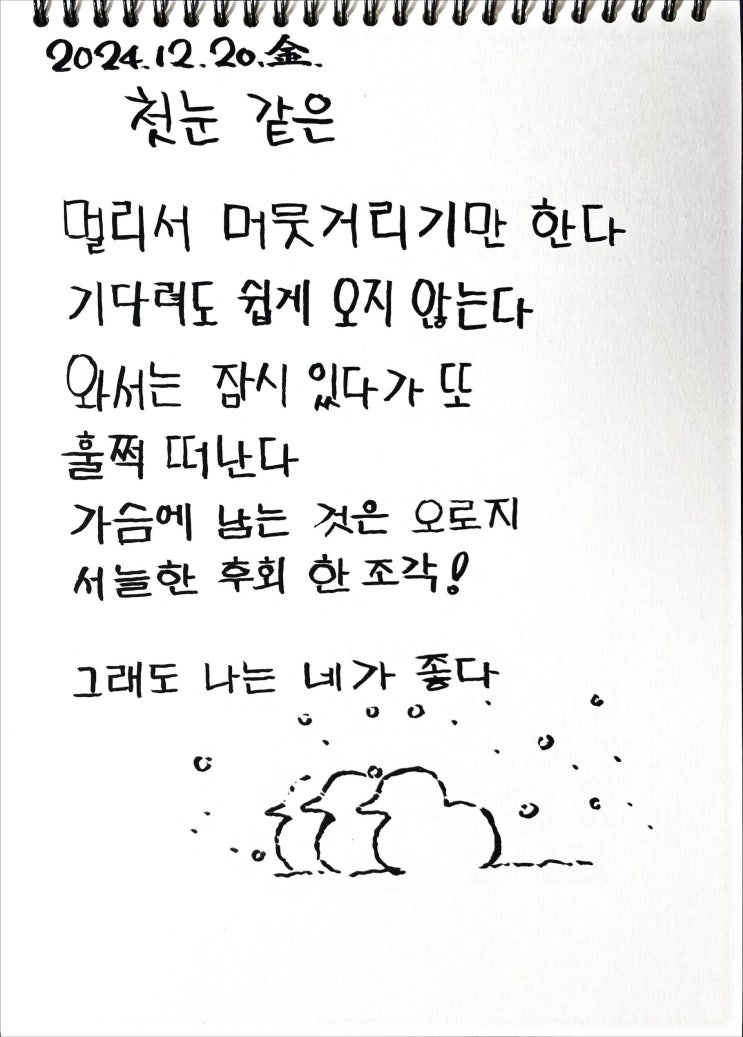 2024.12.20.金.
첫눈 같은
멀리서 머뭇거리기만 한다
기다려도 쉽게 오지 않는다
와서는 잠시 있다가 또
훌쩍 떠난다
가슴에 남는 것은 오로지
서늘한 후회 한 조각!
그래도 나는 네가 좋다